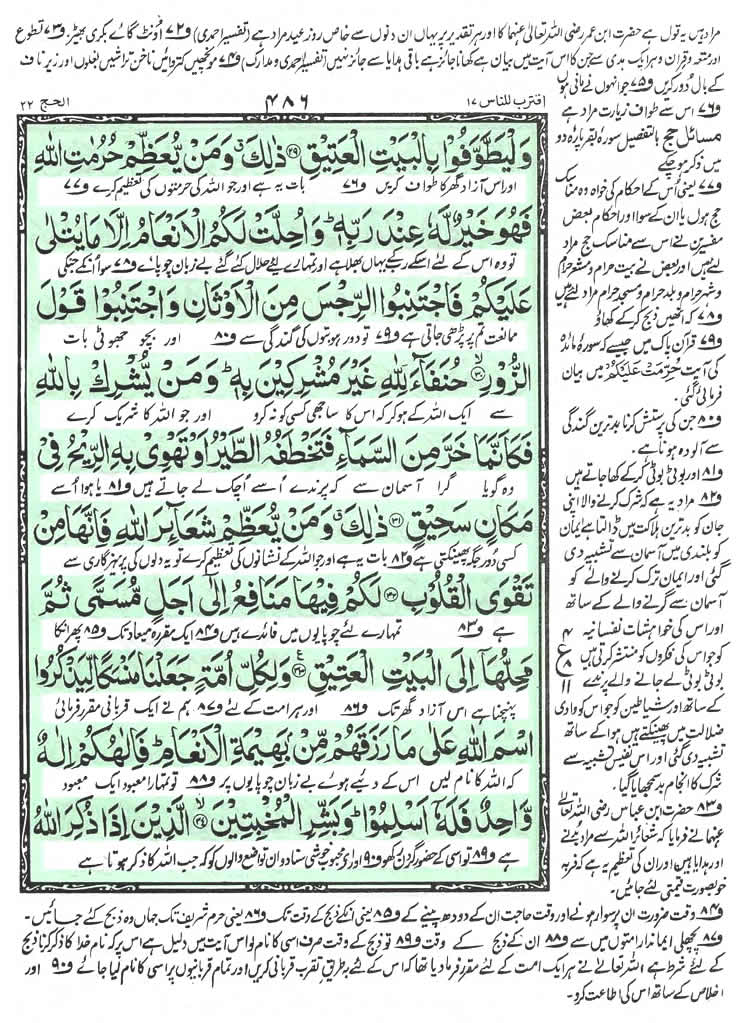 مراد ہیں یہ قول ہے حضرت ابن عمر رضی اللہ تعالیٰ عنہما کا اور ہر تقدیر پر یہاں ان دنوں سے خاص روز عید مراد ہے (تفسیر احمدی) و۷۲ اونٹ گائے بکری بھیڑ و۷۳ تطوع
اور متعہ و قران و ہر ایک ہدی سے جن کا اس آیت میں بیان ہے کھانا جائز ہے باقی ہدایا سے جائز نہیں (تفسیر احمدی و مدارک) و۷۴ مونچھیں کتروائیں ناخن تراشیں بغلوں اور زیر ناف
کے بال دور کریں و۷۵ جو انہوں نے مانی ہوں
اقترب للناس ۱۷
۴۸۶
الحج ۲۲
و۷۶ اس سے طواف زیارت مراد ہے
مسائل حج بالتفصیل سورۂ بقر پارہ دو
میں ذکر ہو چکے
و۷۷ یعنی اس کے احکام کی خواہ وہ مناسک
حج ہوں یا ان کے سوا اور احکام بعض
مفسرین نے اس سے مناسک حج مراد
لیے ہیں اور بعض نے بیت حرام و مشعر حرام
و شہر حرام و بلد حرام و مسجد حرام مراد لئے ہیں
و۷۸ کہ انھیں ذبح کر کے کھاؤ
و۷۹ قرآن پاک میں جیسے کہ سورۂ مائدہ
کی آیت حُرِّمَتْ عَلَيْكُمْ میں بیان
فرمائی گئی۔
و۸۰ جن کی پرستش کرنا بدترین گندگی
سے آلودہ ہونا ہے۔
و۸۱ اور بوٹی بوٹی کر کے کھا جاتے ہیں
و۸۲ مراد یہ ہے کہ شرک کرنے والا اپنی
جان کو بدترین ہلاکت میں ڈالتا ہے ایمان
کو بلندی میں آسمان سے تشبیہ دی
گئی اور ایمان ترک کرنے والے کو
آسمان سے گرنے والے کے ساتھ
اور اس کی خواہشات نفسانیہ
کو جو اس کی فکروں کو منتشر کرتی ہیں
بوٹی بوٹی لے جانے والے پرندے
کے ساتھ اور شیاطین کو جو اس کو وادی
ضلالت میں پھینکتے ہیں ہوا کے ساتھ
تشبیہ دی گئی اور اس نفیس تشبیہ سے
شرک کا انجام بد سمجھایا گیا۔
و۸۳ حضرت ابن عباس رضی اللہ تعالیٰ
عنہما نے فرمایا کہ شعائر اللہ سے مراد بدنے
اور ہدایا ہیں اور ان کی تعظیم یہ ہے کہ فربہ
خوبصورت قیمتی لئے جائیں۔
وَلْيَطَّوَّفُوْا بِالْبَيْتِ الْعَتِيْقِ ۲۹ ذٰلِكَ ۗ وَمَنْ يُّعَظِّمْ حُرُمٰتِ اللّٰهِ
اور اس آزاد گھر کا طواف کریں و۷۶ بات یہ ہے اور جو اللہ کی حرمتوں کی تعظیم کرے و۷۷
فَهُوَ خَيْرٌ لَّهٗ عِنْدَ رَبِّهٖ ؕ وَاُحِلَّتْ لَكُمُ الْاَنْعَامُ اِلَّا مَا يُتْلٰى
تو وہ اس کے لئے اسکے رب کے یہاں بھلا ہے اور تمہارے لیے حلال کئے گئے بے زبان چوپائے و۷۸ سوا انکے جنکی
عَلَيْكُمْ فَاجْتَنِبُوا الرِّجْسَ مِنَ الْاَوْثَانِ وَاجْتَنِبُوْا قَوْلَ
ممانعت تم پر پڑھی جاتی ہے و۷۹ تو دور ہو بتوں کی گندگی سے و۸۰ اور بچو جھوٹی بات
الزُّوْرِ ۙ ۳۰ حُنَفَآءَ لِلّٰهِ غَيْرَ مُشْرِكِيْنَ بِهٖ ؕ وَمَنْ يُّشْرِكْ بِاللّٰهِ
سے ایک اللہ کے ہو کر کہ اس کا ساجھی کسی کو نہ کرو اور جو اللہ کا شریک کرے
فَكَاَنَّمَا خَرَّ مِنَ السَّمَآءِ فَتَخْطَفُهُ الطَّيْرُ اَوْ تَهْوِيْ بِهِ الرِّيْحُ فِيْ
وہ گویا گرا آسمان سے کہ پرندے اسے اچک لے جاتے ہیں و۸۱ یا ہوا اسے
مَكَانٍ سَحِيْقٍ ۳۱ ذٰلِكَ ۗ وَمَنْ يُّعَظِّمْ شَعَآئِرَ اللّٰهِ فَاِنَّهَا مِنْ
کسی دور جگہ پھینکتی ہے و۸۲ بات یہ ہے اور جو اللہ کے نشانوں کی تعظیم کرے تو یہ دلوں کی پرہیزگاری سے
تَقْوَى الْقُلُوْبِ ۳۲ لَكُمْ فِيْهَا مَنَافِعُ اِلٰٓى اَجَلٍ مُّسَمًّى ثُمَّ
ہے و۸۳ تمہارے لئے چوپایوں میں فائدے ہیں و۸۴ ایک مقررہ میعاد تک و۸۵ پھر انکا
مَحِلُّهَآ اِلَى الْبَيْتِ الْعَتِيْقِ ۳۳ وَلِكُلِّ اُمَّةٍ جَعَلْنَا مَنْسَكًا لِّيَذْكُرُوا
پہنچنا ہے اس آزاد گھر تک و۸۶ اور ہر امت کے لئے و۸۷ ہم نے ایک قربانی مقرر فرمائی
اسْمَ اللّٰهِ عَلٰى مَا رَزَقَهُمْ مِّنْۢ بَهِيْمَةِ الْاَنْعَامِ ؕ فَاِلٰهُكُمْ اِلٰهٌ
کہ اللہ کا نام لیں اس کے دیے ہوئے بے زبان چوپایوں پر و۸۸ تو تمہارا معبود ایک معبود
وَّاحِدٌ فَلَهٗٓ اَسْلِمُوْا ؕ وَبَشِّرِ الْمُخْبِتِيْنَ ۙ ۳۴ الَّذِيْنَ اِذَا ذُكِرَ اللّٰهُ
ہے و۸۹ تو اسی کے حضور گردن رکھو و۹۰ اور اے محبوب خوشی سنا دو ان تواضع والوں کو کہ جب اللہ کا ذکر ہوتا ہے
ع
۴
۸
۱۱
و۸۴ وقت ضرورت ان پر سوار ہونے اور وقت حاجت ان کے دودھ پینے کے و۸۵ یعنی انکے ذبح کے وقت تک و۸۶ یعنی حرم شریف تک جہاں وہ ذبح کئے جائیں۔
و۸۷ پچھلی ایماندار امتوں میں سے و۸۸ ان کے ذبح کے وقت و۸۹ تو ذبح کے وقت صرف اسی کا نام لو اس آیت میں دلیل ہے اس پر کہ نام خدا کا ذکر کرنا ذبح
کے لئے شرط ہے اللہ تعالیٰ نے ہر ایک امت کے لئے مقرر فرما دیا تھا کہ اس کے لئے بطریق تقرب قربانی کریں اور تمام قربانیوں پر اسی کا نام لیا جائے و۹۰ اور
اخلاص کے ساتھ اس کی اطاعت کرو۔